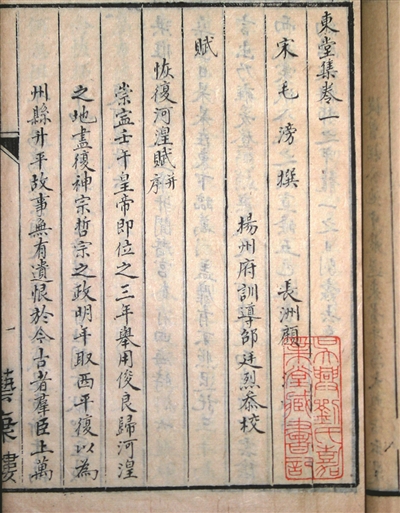 東堂集卷上
宋 毛滂 撰 長洲顧
揚州府訓導邵廷烈恭校
賦
恢復河湟賦并序
崇寧壬午皇帝即位之三年舉用俊良歸河湟
之地盡復神宗哲宗之政明年取西平復以為
州縣升平故事無有遺恨於今古著羣臣上萬
一
藝海樓
吳興劉氏嘉
業堂藏書記